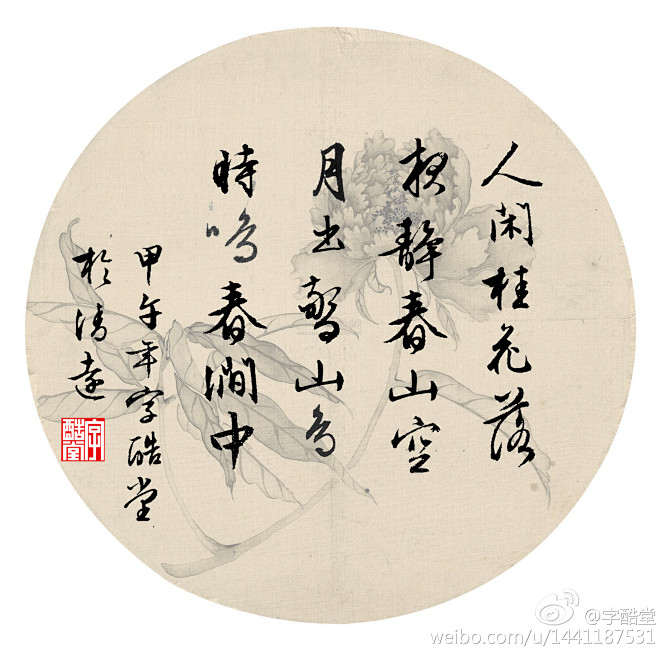 人閑桂花落
夜静春山空
月出驚山鳥
時鳴春澗中
甲午年字酷堂
於清遠
字酷堂
@字酷堂
weibo.com/u/1441187531